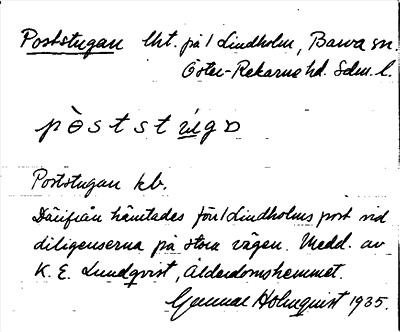 Poststugan lht. på/Lindholm, Barva sn.
Öster-Rekarne hd. Sdm. l.
pòststu̲gɒ
Poststugan kb.
Därifrån hämtades förr/Lindholms post vid
diligenserna på stora vägen. Medd. av
K. E. Lundqvist, Ålderdomshemmet.
Gunnar Holmquist 1935.